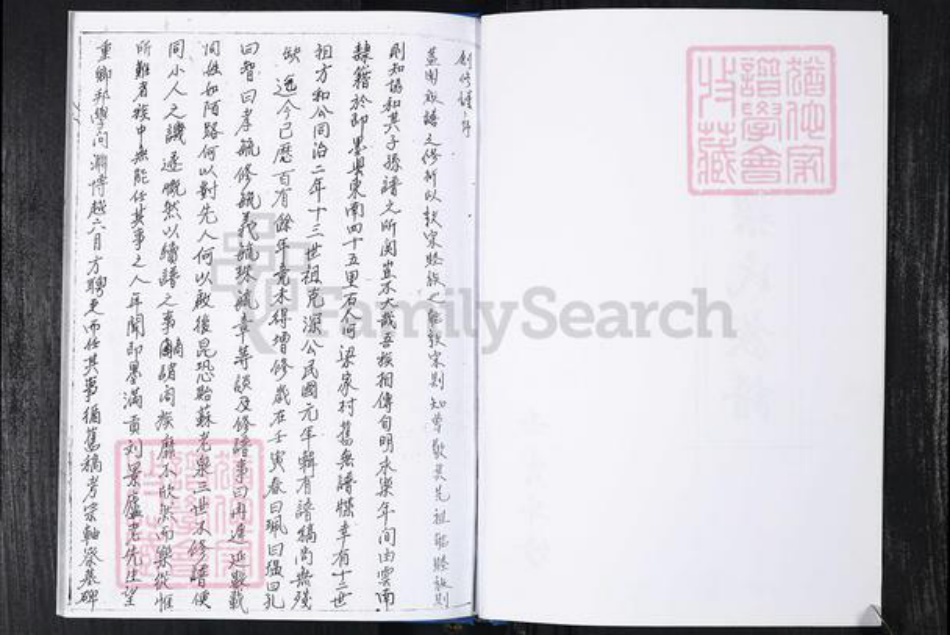 創修譜序
蓋聞族譜之修所以敦宗睦族也能敦宗則知尊敬其先祖能睦族則
則知協和其子孫譜之所関豈不大哉吾族相傳自明永樂年間由雲南
隸籍於即墨輿東南四十五里石人河梁家村舊無譜牒幸有十三世
祖方和公同治二年十三世祖克深公民國元年輯有譜稿尚無殘
缺迄今已歷百有餘年竟未得增修歲在壬寅春曰珮曰瑥曰孔
曰智曰孝毓修毓義毓珠毓章等談及修譜事曰再逢延數載
同姓如陌路何以對先人何以啟後昆恐貽蘇老泉三世不修譜便
同小人之譏遂慨然以續譜之事商諸闔族靡不欣然而樂從惟
所難者族中無能任其事之人年聞即墨滿貢刘景廬老先生望
重鄉邦學問淵博越六月方聘之而任其事循舊稿考宗軸察墓碑
猶他家
譜學會
收藏
FamilySearch